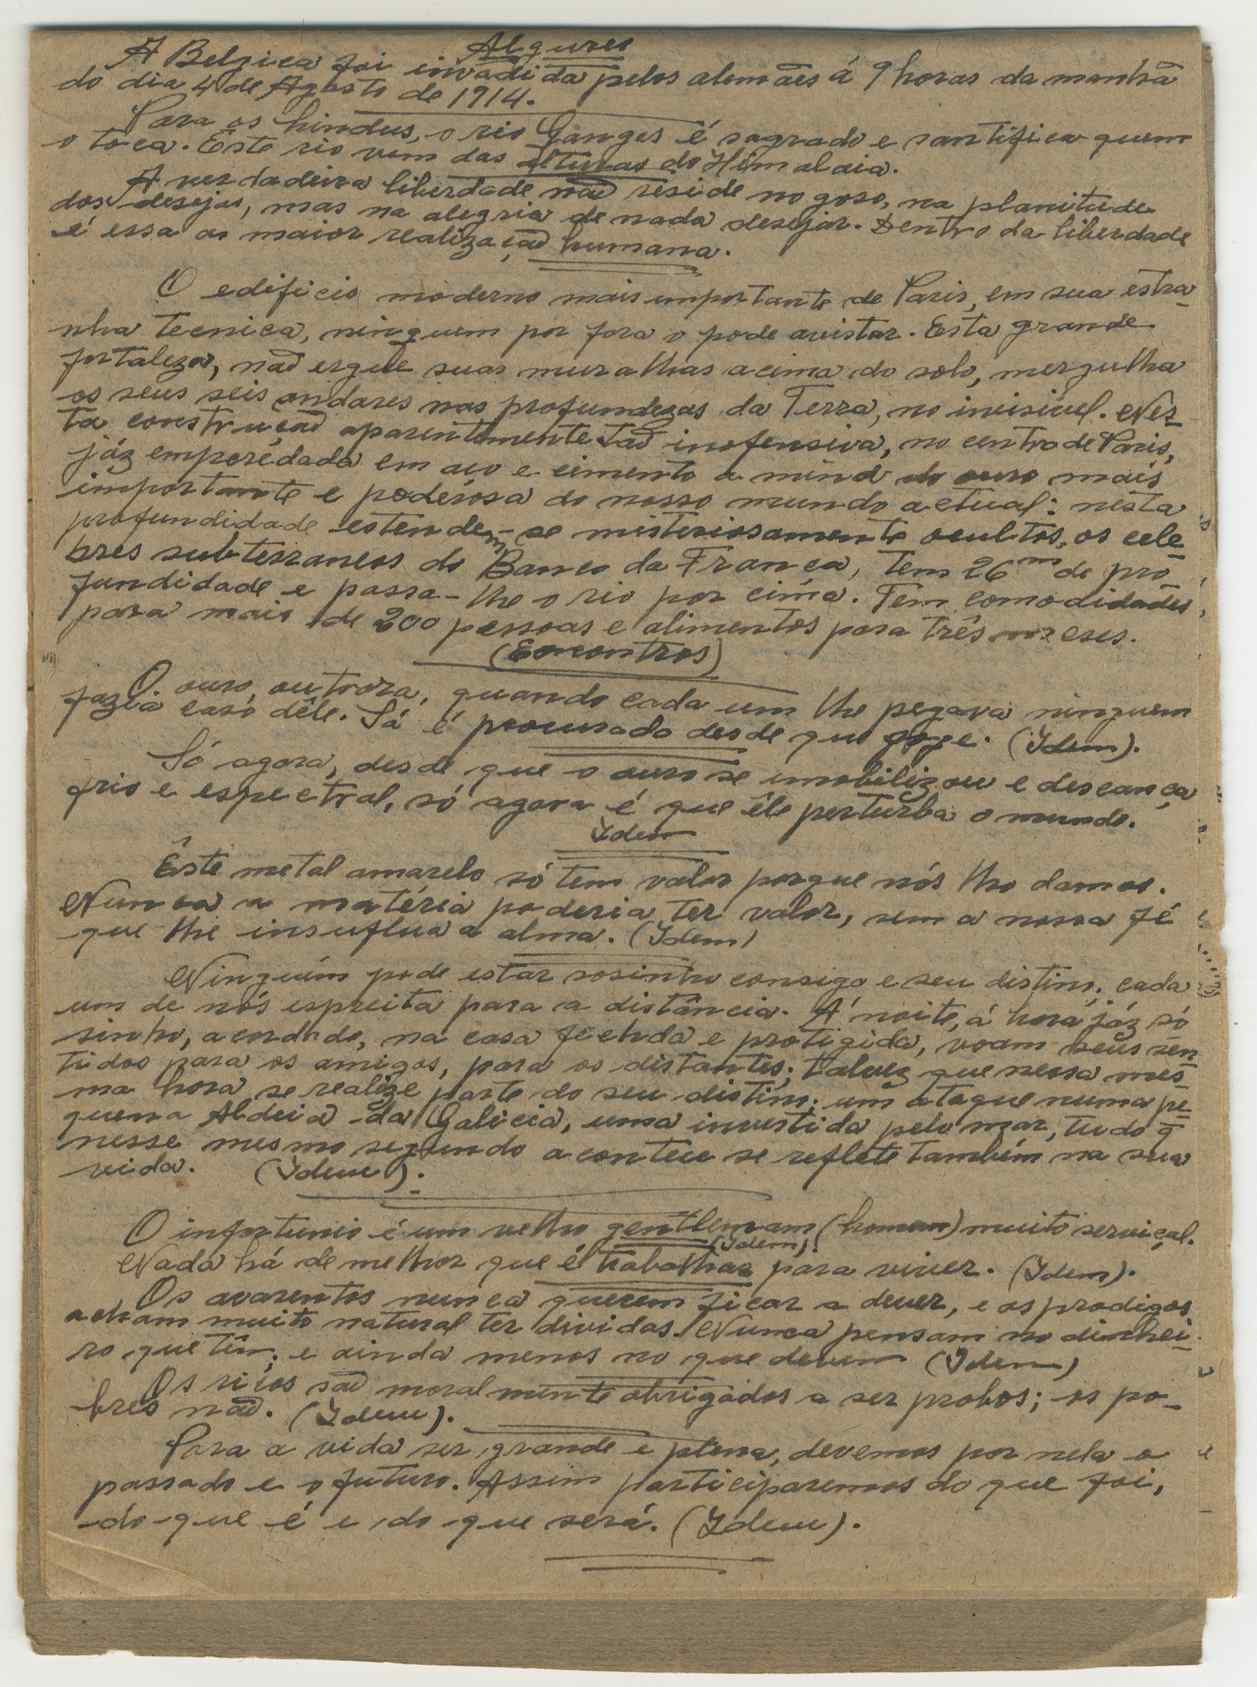 Algures
A Belgica foi invadida pelos alemães á 9 horas da manhã
do dia 4 de Agosto de 1914.
Para os hindus, o rio Ganges é sagrado e santifica quem
o toca. Este rio vem das alturas do Himalaia.
A verdadeira liberdade não reside no goso, na planitude
dos desejos, mas na alegria de nada desejar. Dentro da liberdade
é essa a maior realização humana.
O edificio moderno mais importante de Paris, em sua estra-
nha tecnica, ninguem por fora o pode avistar. Esta grande
fortaleza, não ergue suas muralhas acima do solo, mergulha
os seus seis andares nas profundezas da Terra, no invisivel. Nes-
ta construção aparentemente tão inofensiva, no centro de Paris,
jáz emparedada em aço e cimento a mina do ouro mais
importante e poderosa do nosso mundo actual: nesta
profundidade estendem-se misteriosamente ocultos, os cele-
bres subterraneos do Banco da França, Tem 26 m de pro
fundidade e passa-lhe o rio por cima. Tem comodidades
para mais de 200 pessoas e alimentos para três meses.
(Encontros)
O ouro, outrora, quando cada um lhe pegava ninguem
fazia caso dêle. Só é procurado desde que foge. (Idem).
Só agora, desde que o ouro se imobilizou e descança
frio e espectral, só agora é que êle perturba o mundo.
Idem
Êste metal amarelo só tem valor porque nós lho damos.
Nunca a matéria poderia ter valor, sem a nossa fé
que lhe insuflua a alma. (Idem)
Ninguém pode estar sosinho consigo e seu distino; cada
um de nós espreita para a distância. Á noite, á hora jáz só
sinho, acordado, na casa fechada e protigida, voam seus sen
tidos para os amigos, para os distantes; talvez que nessa mes-
ma hora se realize parte do seu distino: um ataque numa pe-
quena Aldeia da Galicia, uma investida pelo mar, tudo q̃
nesse mesmo segundo acontece se reflete também na sua
vida. (Idem).
O infortunio é um velho gentleman (homem) muito serviçal.
(Idem).
Nada há de melhor que é trabalhar para viver. (Idem).
Os avarentos nunca querem ficar a dever, e os prodigos
acham muito natural ter dividas. Nunca pensam no dinhei-
ro que têm; e ainda menos no que devem (Idem)
Os ricos são moralmente obrigados a ser probos; os po-
bres não. (Idem).
Para a vida ser grande e plena, devemos por nela o
passado e o futuro. Assim participaremos do que foi,
do que é e do que será. (Idem).